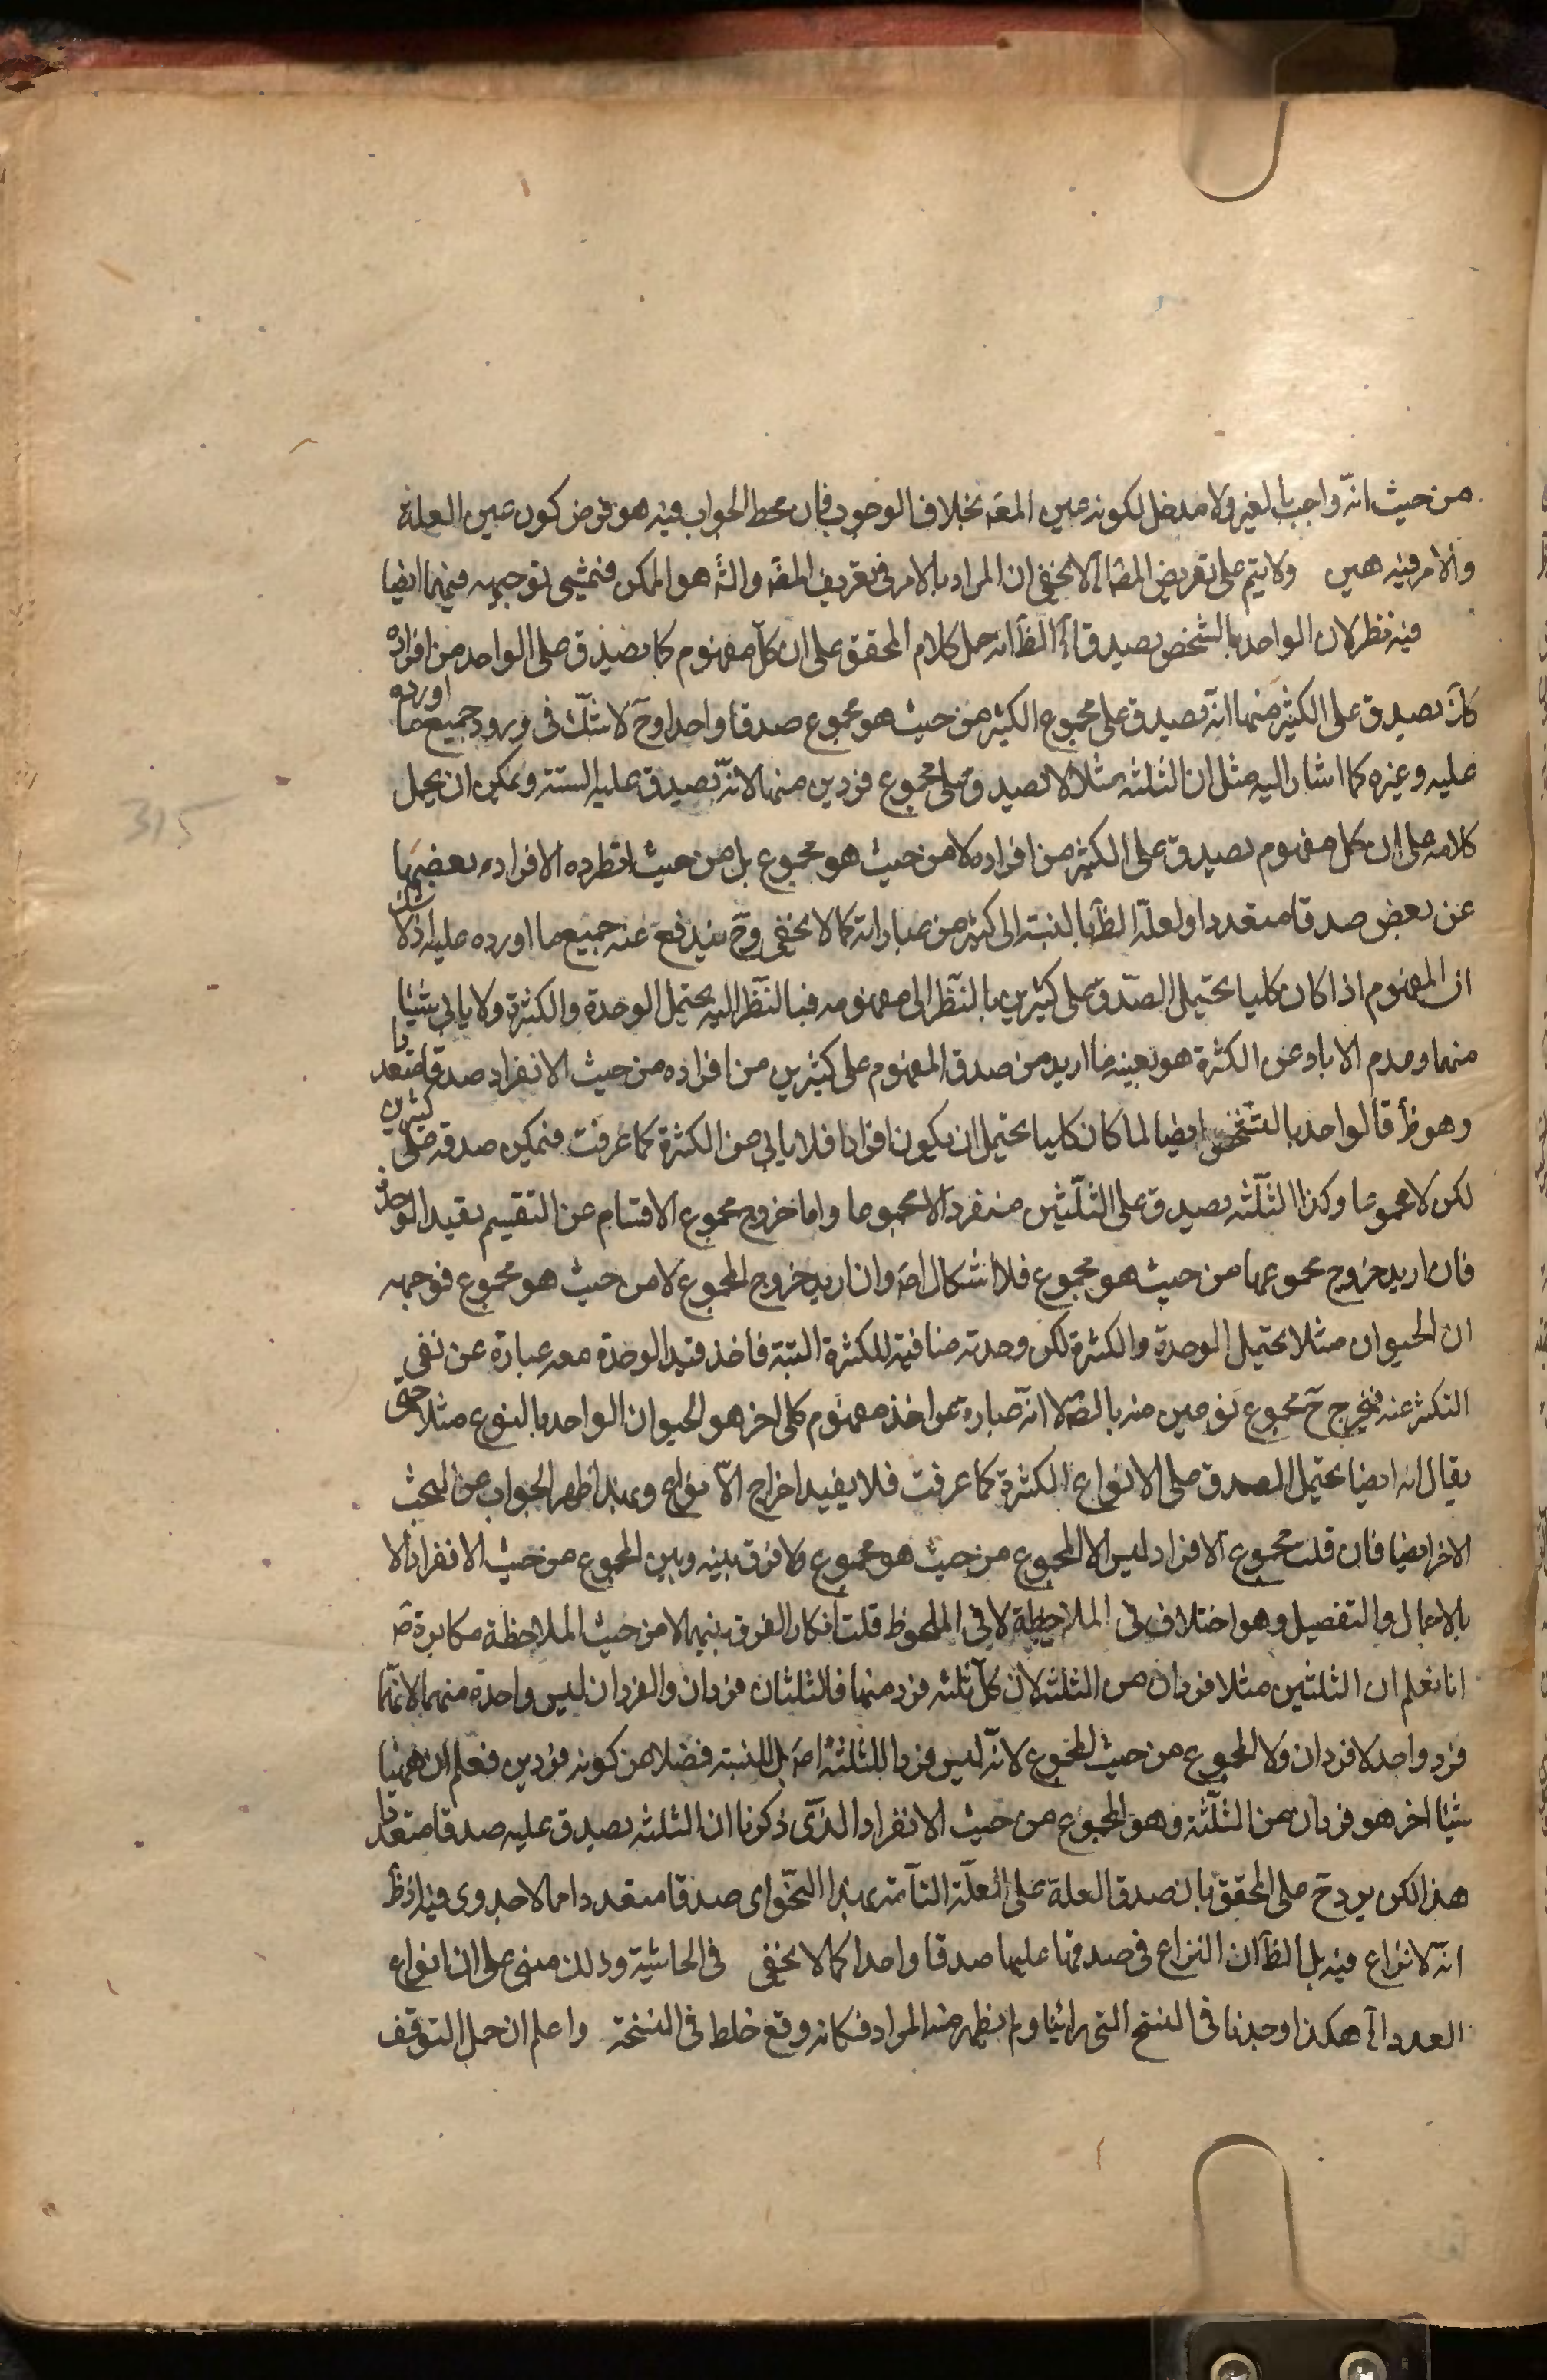 من حيث انّه واجب بالغير ولا مدخل لكونه عين المقه بخلاف الوجوب فان محط الجواب فيه هو فرض كون عين العلة
والامر فيه هين ولا يتم على تعريض المص آه لا يخفى ان المراد بالامر في تعريف المقه والثه هو الممكن فتمشى توجيهه فيهما ايضا
فيه نظر لان الواحد بالشخص يصدق آه الظ انه حمل كلام المحقق على ان كل مفهوم كما يصدق على الواحد من افراده
كك يصدق على الكثير منها انه يصدق على مجموع الكثير من حيث هو مجموع صدقا واحدا وح لا شك في ورود جميع ما اورده
عليه وغيره كما اشار اليه مثل ان الثلثة مثلا لا تصدق على مجموع فردين منها لانه تصدق عليه الستة ويمكن ان يحمل
كلامه على ان كل مفهوم يصدق على الكثير من افراده لا من حيث هو مجموع بل من حيث الافراد بعضها
عن بعض صدقا متعددا ولعله الظ بالنسبة الى كثير من عباراته كما لا يخفى وح يندفع عنه جميع ما اورده عليه اذ لا شك
ان المفهوم اذا كان كليا يحتمل الصدق على كثيرين بالنظر الى مفهومه فبالنظر اليه يحتمل الوحدة والكثرة ولا يابى شيئا
منهما وعدم الاباء عن الكثرة هو بعينه ما اريد من صدق المفهوم على كثيرين من افراده من حيث الانفراد صدقا متعددا
وهو ظ فالواحد بالشخص ايضا لما كان كليا يحتمل ان يكون افرادا فلا يابى من الكثرة كما عرفت فيمكن صدقه على كثيرين
لكن لا مجموعا وكذا الثلثة يصدق على الثلثين منفردا لا مجموعا واما خروج مجموع الاقسام عن التقسيم بقيد الوحدة
فان اريد خروج مجموعها من حيث هو مجموع فلا اشكال اصه وان اريد خروج المجموع لا من حيث هو مجموع فوجهه
ان الحيوان مثلا يحتمل الوحدة والكثرة لكن وحدته منافية للكثرة البتة فاخذ قيد الوحدة معه عبارة عن نفى
التكثر عنه فيخرج ح مجموع نوعين منه بالضه لا انه عبارة عن اخذ مفهوم كلى اخر هو الحيوان الواحد بالنوع مثلا حتى
يقال انه ايضا يحتمل الصدق على الانواع الكثيرة كما عرفت فلا يفيد اخراج الانواع وبهذا ظهر الجواب من البحث
الاخر ايضا فان قلت مجموع الافراد ليس الا المجموع من حيث هو مجموع ولا فرق بينه وبين المجموع من حيث الانفراد الا
بالاجمال والتفصيل وهو اختلاف في الملاحظة لا في الملحوظ قلت انكار الفرق بينهما لا من حيث الملاحظة مكابرة
انا نعلم ان الثلثين مثلا فردان من الثلثة لان كل ثلثة فرد منها فالثلثان فردان والفردان ليس واحدة منهما لانها
فرد واحد لا فردان ولا المجموع من حيث المجموع لانه ليس فردا للثلثة اصه بل للستة فضلا من كونه فردين فعلم ان ههنا
شيئا اخر هو فردان من الثلثة وهو المجموع من حيث الانفراد الذى ذكرنا ان الثلثة يصدق عليه صدقا متعددا
هذا لكن يرد ح على المحقق بان صدق العلة على العلة التامة بهذا النحو اى صدقا متعددا مما لا جدوى فيه اذ ظ
انه لا نزاع فيه بل الظ ان النزاع في صدقها عليها صدقا واحدا كما لا يخفى في الحاشية وذلك مبنى على ان انواع
العدد آه هكذا وجدنا في النسخ التى راينا ولم يظهر منه المراد فكانه وقع خلط في النسخة واعلم ان حمل التوقف
315